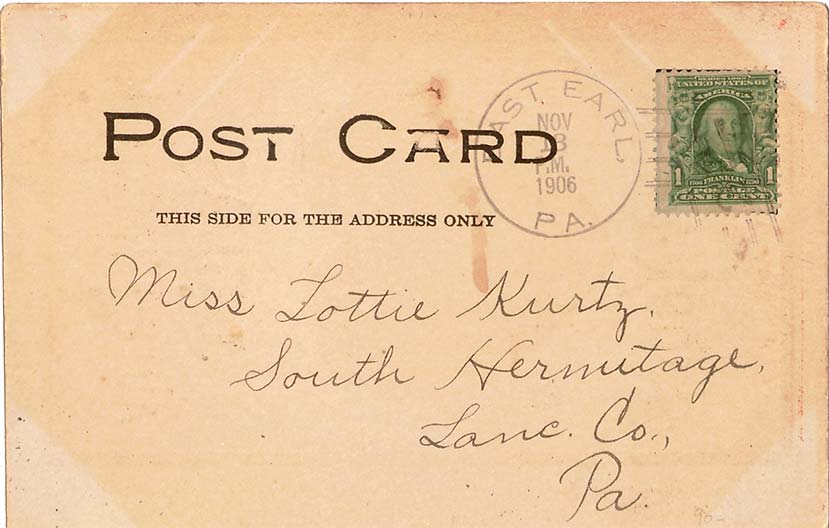 POST CARD
THIS SIDE FOR THE ADDRESS ONLY
EAST EARL,
NOV
13
P.M.
1906
PA.
SERIES 1902
UNITED STATES OF
AMERICA
1706 FRANKLIN 1790
1 1
POSTAGE
ONE CENT
Miss Lottie Kurtz,
South Hermitage,
Lanc. Co.,
Pa.
90-